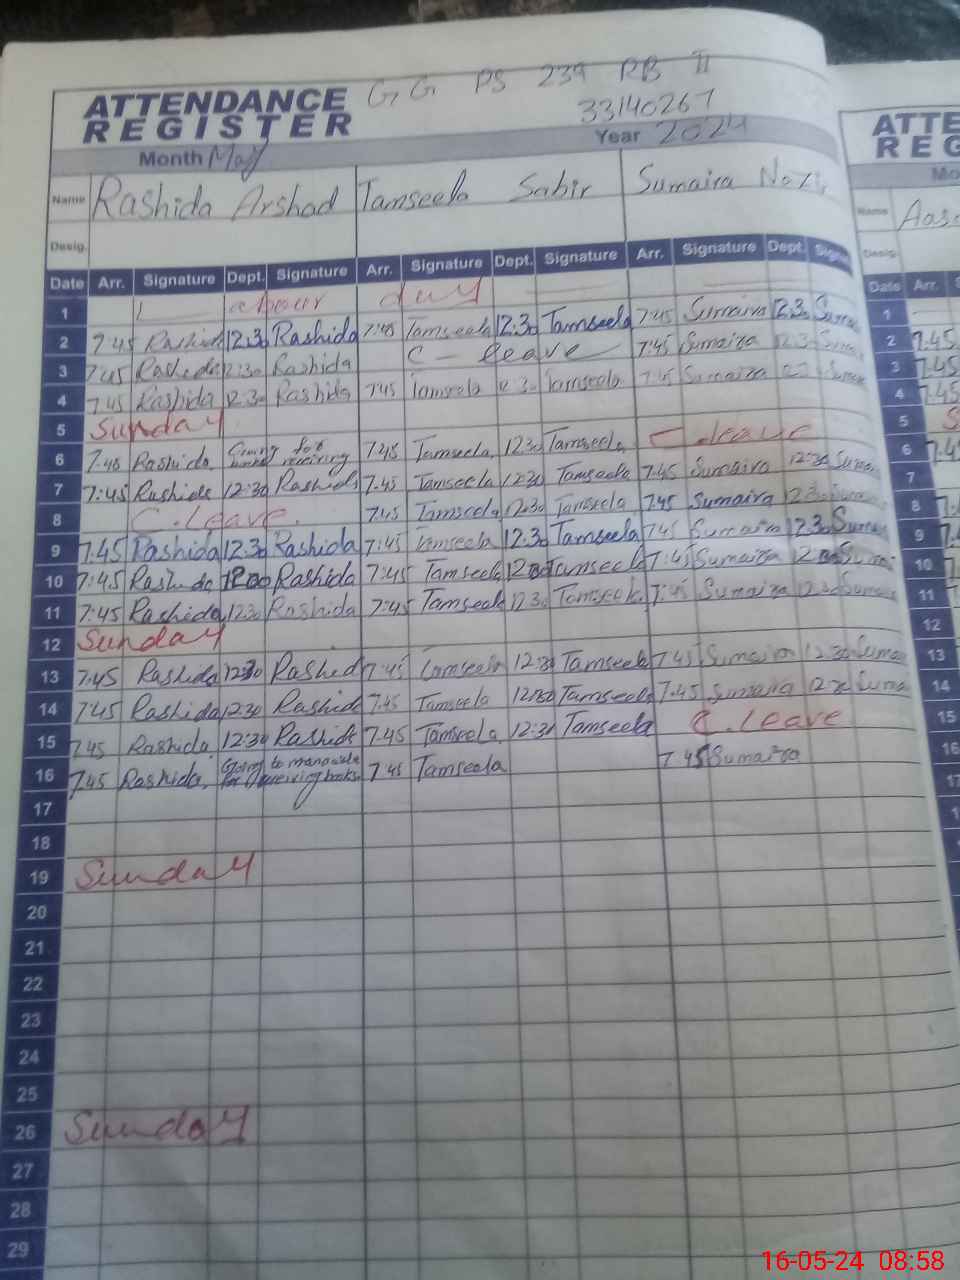 GG PS 239 RB II
ATTENDANCE REGISTER
33140267
Month May Year 2024
Name Rashida Arshad Tamseela Sabir Sumaira Nazir
Desig.
Date Arr. Signature Dept. Signature Arr. Signature Dept. Signature Arr. Signature Dept. Signature
1 Labour day
2 7:45 Rashida 12:30 Rashida 7:45 Tamseela 12:30 Tamseela 7:45 Sumaira 12:30 Sumai
3 7:45 Rasheda 12:30 Rashida C - leave 7:45 Sumaira 12:30 Sumai
4 7:45 Rashida 12:30 Rashida 7:45 Tamseela 12:30 Tamseela 7:45 Sumaira Sumai
5 Sunday
6 7:45 Rashida for receiving 7:45 Tamseela 12:30 Tamseela C.leave
7 7:45 Rashida 12:30 Rashida 7:45 Tamseela 12:30 Tamseela 7:45 Sumaira 12:30 Suma
8 C.leave. 7:45 Tamseela 12:30 Tamseela 7:45 Sumaira 12:30 Suma
9 7.45 Rashida 12:30 Rashida 7:45 Tamseela 12:30 Tamseela 7:45 Sumaira 12:30 Suma
10 7:45 Rashida 12:00 Rashida 7:45 Tamseela Tamseela 7:45 Sumaira Suma
11 7:45 Rashida 12:30 Rashida 7:45 Tamseela 12:30 Tamseela 7:45 Sumaira 12:30 Suma
12 Sunday
13 7:45 Rashida 12:30 Rashid 7:45 Tamseela 12:30 Tamseela 7:45 Sumaira 12:30 Suma
14 7:45 Rashida 12:30 Rashid 7:45 Tamseela 12:30 Tamseela 7.45 Sumaira 12:30 Suma
15 7:45 Rashida 12:30 Rashida 7:45 Tamseela 12:30 Tamseela C.leave
16 7:45 Rashida. Going to for receiving books. 7:45 Tamseela 7.45 Sumaira
17
18
19 Sunday
20
21
22
23
24
25
26 Sunday
27
28
29
ATTE
REG
Mo
Name
Desig.
Date Arr.
1
2 7.45
3 7.45
4 7.45
5 S
6 7.4
7
8
9
10
11
12
13
14
15
16
17
16-05-24 08:58